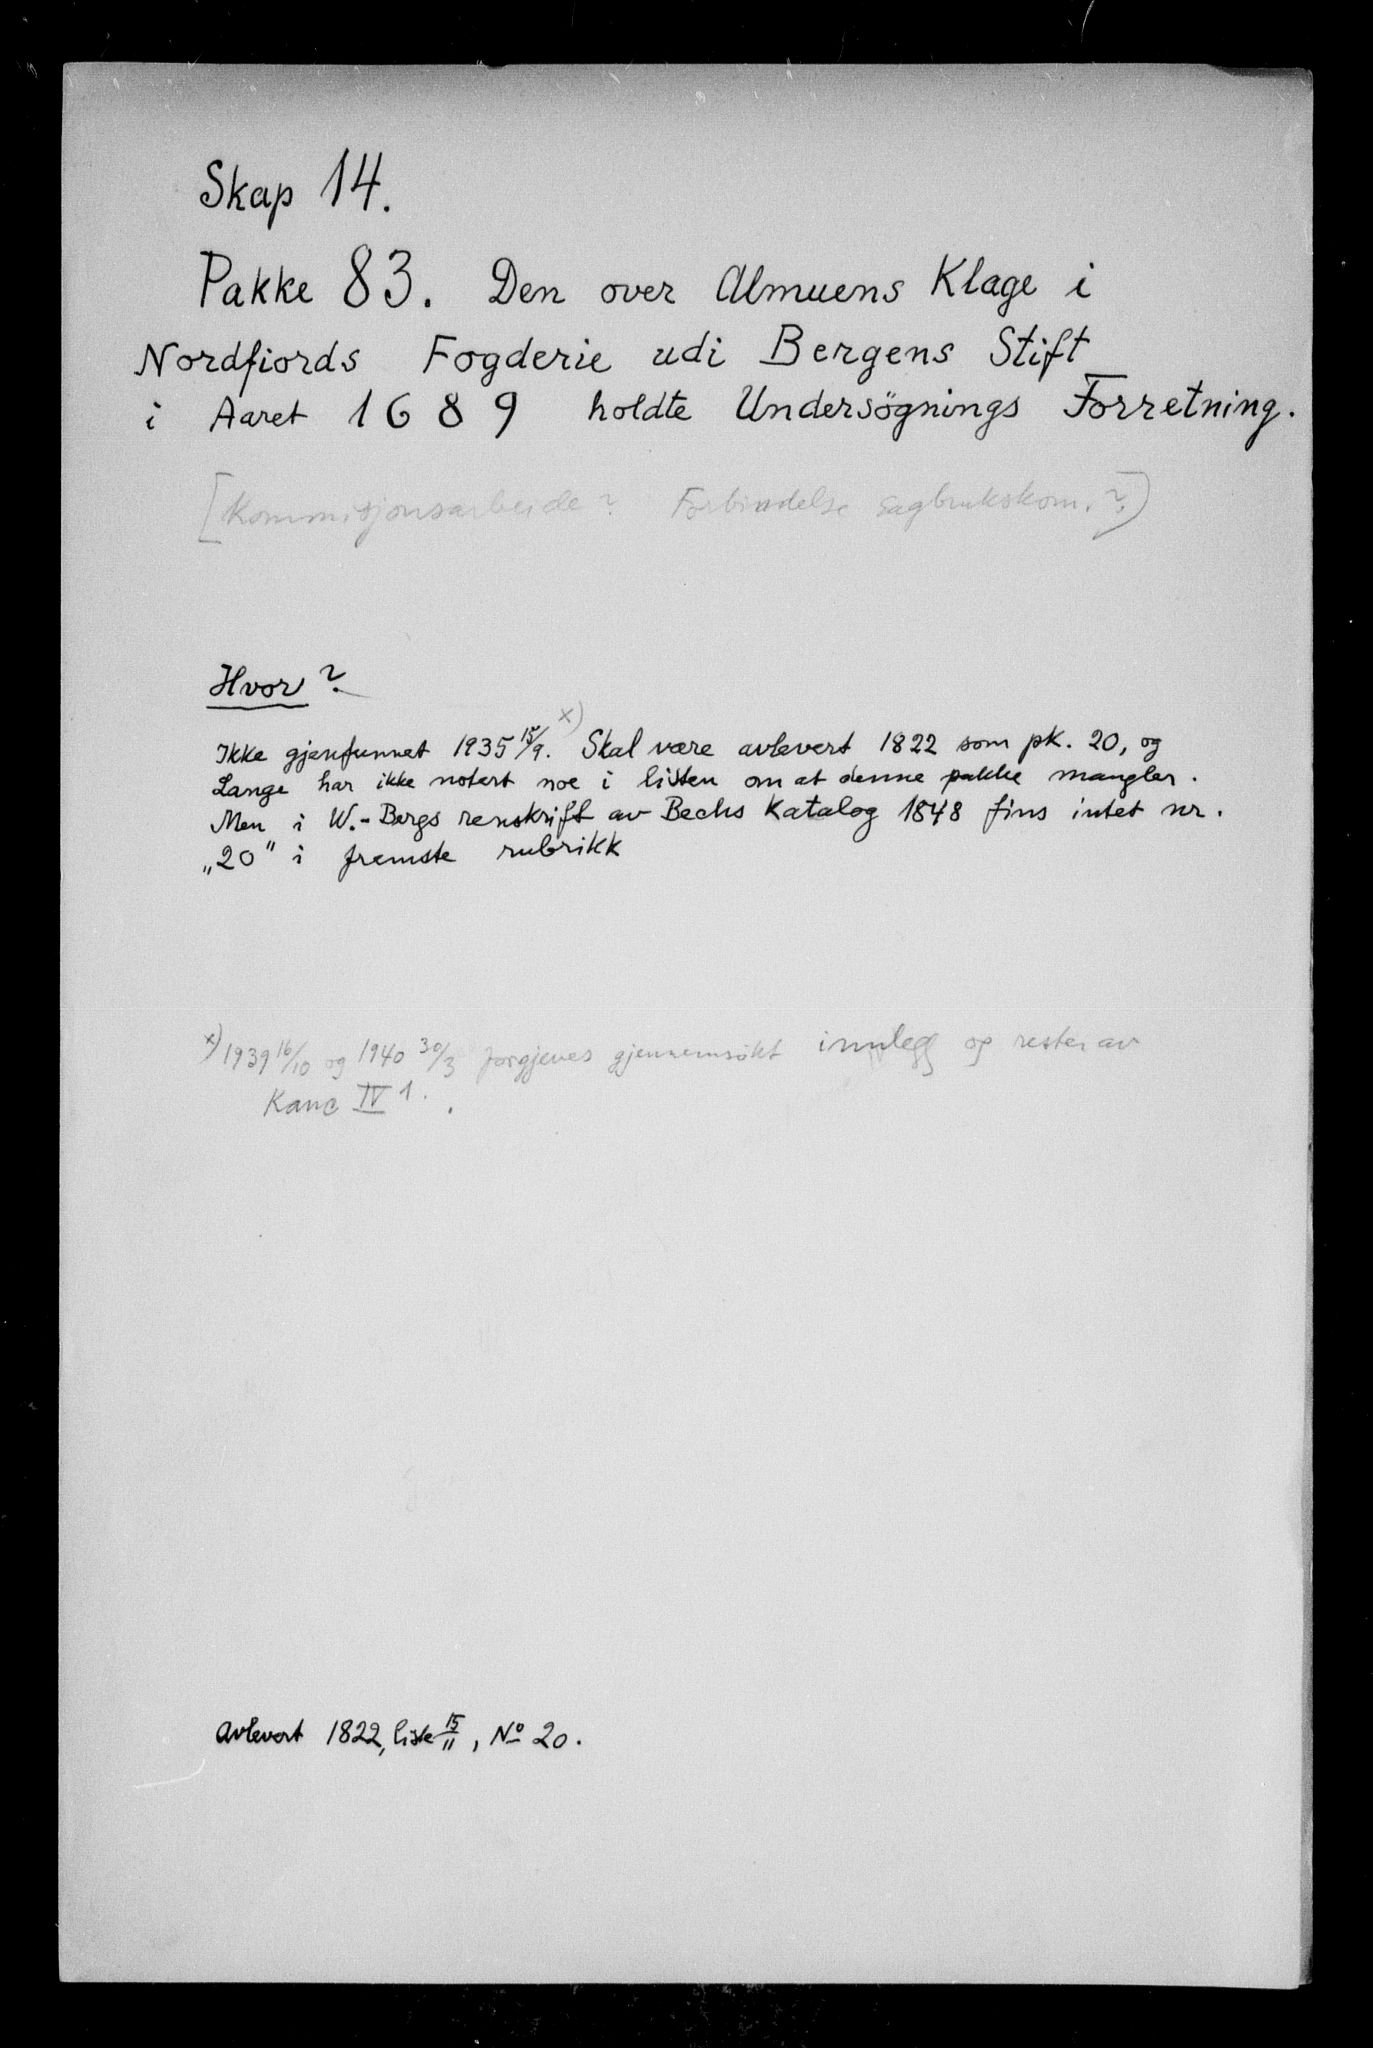 Skap 14.
Pakke 83. Den over Almuens Klage i
Nordfiords Fogderie udi Bergens Stift
i Aaret 1689 holdte Undersögnings Forretning.
[Kommisjonsarbeide? Forbindelse Sagbrukskom.?)
Hvor?
Ikke gjenfunnet 1935 15/9. x) Skal være avlevert 1822 som pk. 20, og
Lange har ikke notert noe i listen om at denne pakke mangler.
Men i W.-Bergs renskrift av Bechs Katalog 1848 fins intet nr.
„20" i fremste rubrikk
x) 1939 16/10 og 1940 30/3 forgjeves gjennemsökt innlegg og rester av
Kanc IV 1.
Avlevert 1822, liste 15/11, No 20.